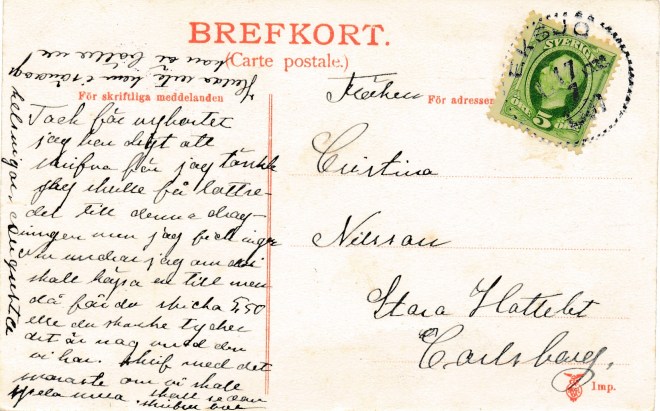 BREFKORT.
(Carte postale.)
För skriftliga meddelanden
För adressen
EKSJÖ
17
7
SVERIGE
5
ÖRE
Tack för vykortet
jag har drygt att
skrifva för jag tänkte
jag skulle få lottse-
del till denna drag-
ningen men jag fick inge
nu undrar jag om
skall köpa en till men
då får du skicka 5,50
eller du kanske tycker
det är nog med den
vi har. skrif med det
snaraste om vi skall
spela mera skall sedan
helsningar Augusta
Fröken
Cristina
Nilsson
Stora Hottelet
Carlsborg.
Imp.